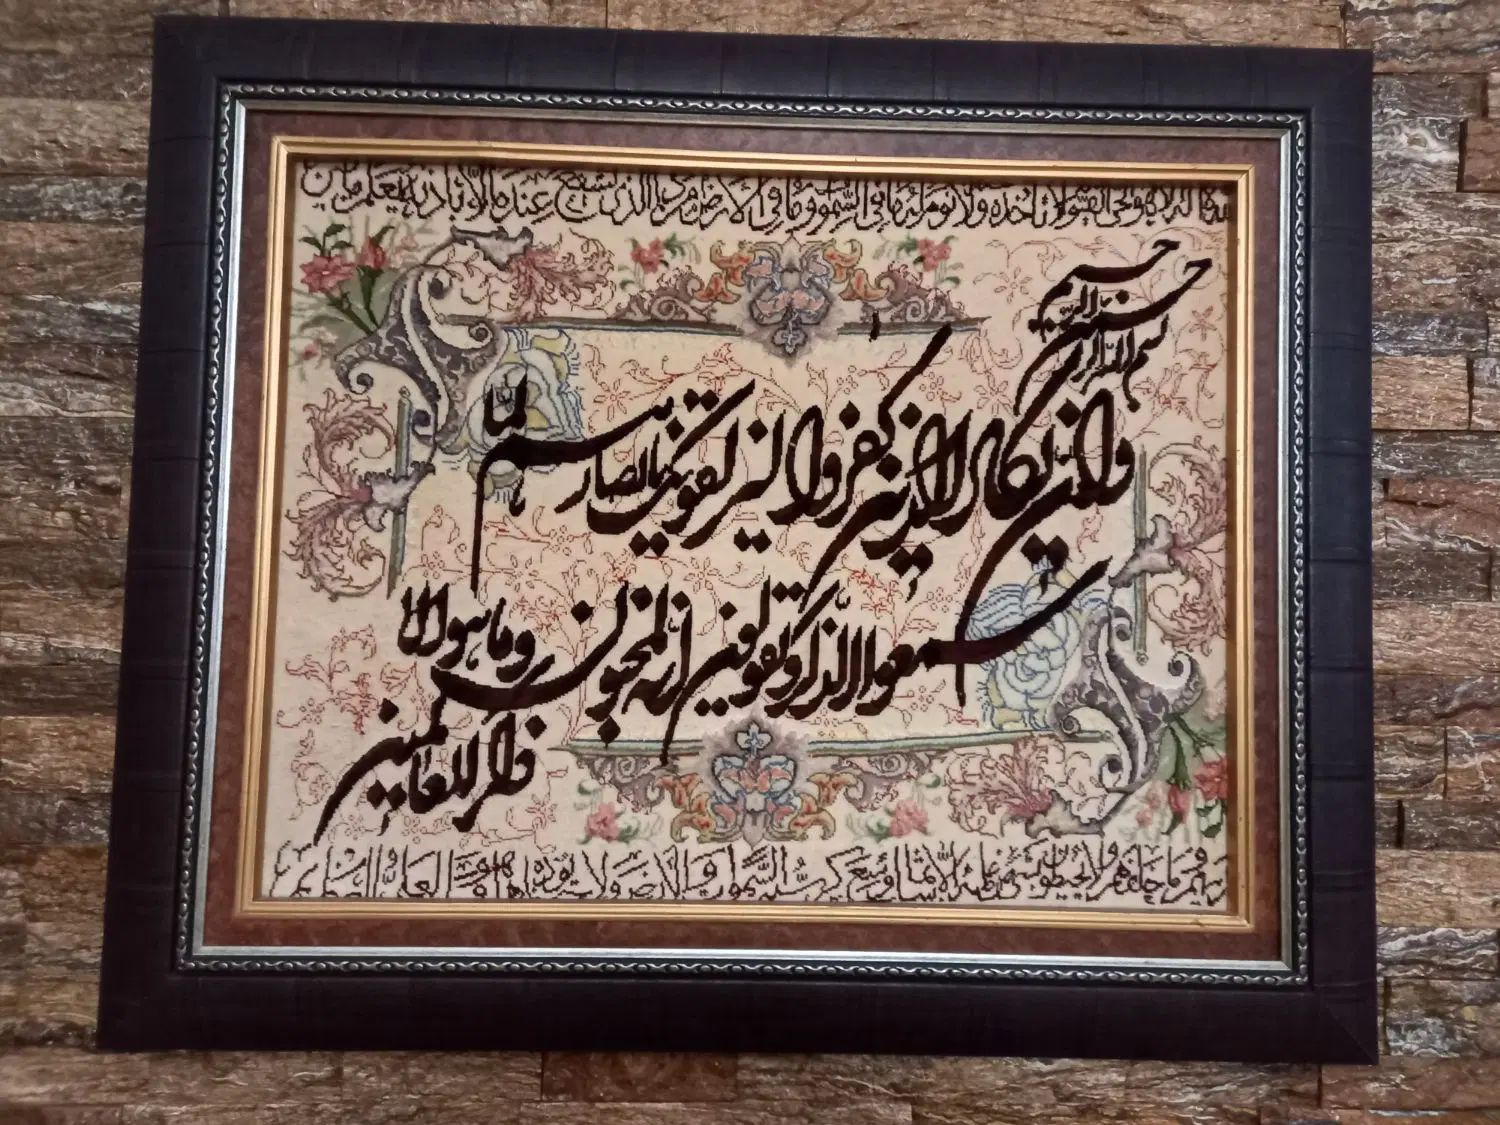 الله لا إله إلا هو الحي القيوم لا تأخذه سنة ولا نوم له ما في السموات وما في الأرض من ذا الذي يشفع عنده إلا بإذنه يعلم ما بين
بسم الله الرحمن الرحيم
وان يكاد الذين كفروا ليزلقونك بابصارهم لما
سمعوا الذكر و يقولون انه لمجنون وما هو الا
ذكر للعالمين
ايديهم وما خلفهم ولا يحيطون بشيء من علمه إلا بما شاء وسع كرسيه السموات والأرض ولا يئوده حفظهما وهو العلي العظيم